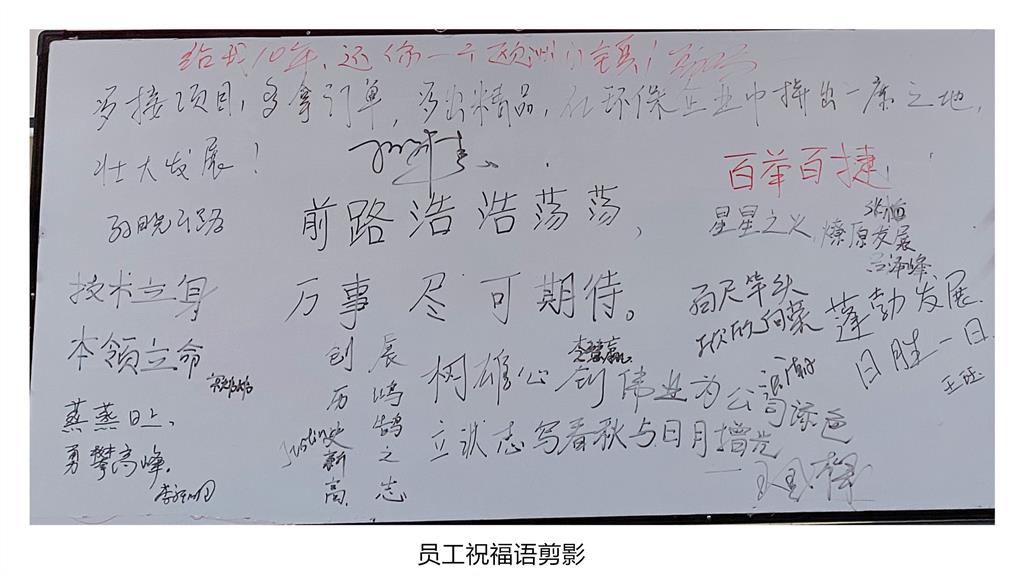 给我10年,还你一个欧洲
多接项目,多拿引单,多出精品,在环保企业中拼出一席之地,
壮大发展!
百举百捷
前路浩浩荡荡,
万事尽可期待。
星星之义,燎原发展
技术立身
本领立命
百尺竿头
欣欣向荣
蓬勃发展
日胜一日
王珏
蒸蒸日上、
勇攀高峰.
展鸿鹄之志
创历史新高
Justin
树雄心 创伟业为公司添色
立状志写春秋与日月增光
员工祝福语剪影